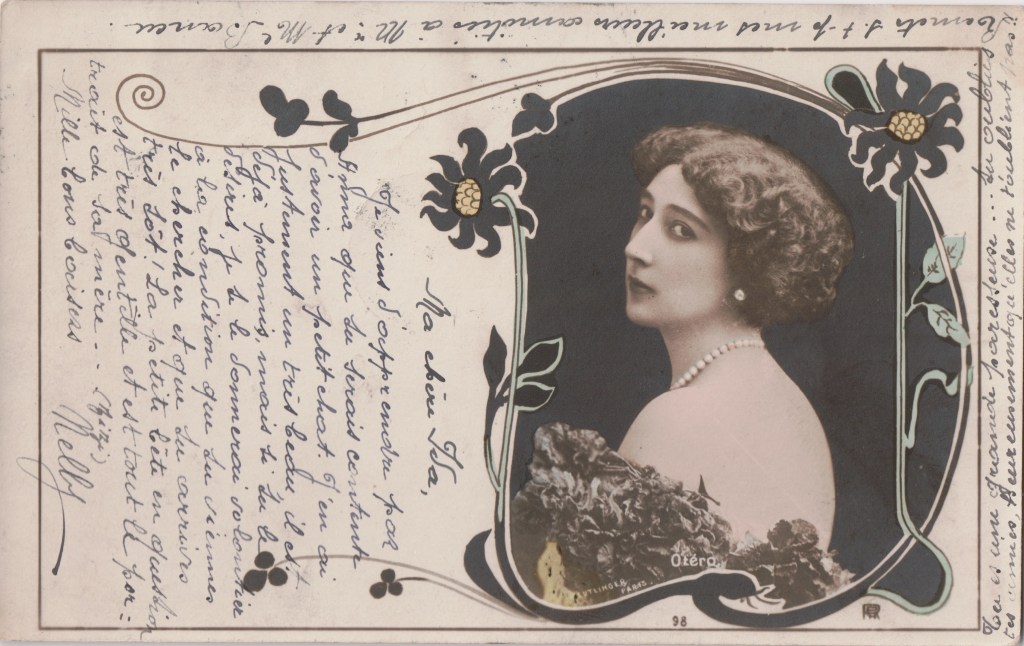 Ma chère Isa,
Je viens d'apprendre par
Irma que tu serais contente
d'avoir un petit chat. J'en ai
justement un très beau, il est
déjà promis, mais si tu le
désires, je te le donnerai volontiers
à la condition que tu viennes
le chercher et que tu arrives
très tôt! La petite bête en question
est très gentille et est tout le por-
trait de sa mère. -
Mille bons baisers Nelly
Remets s.t.p. mes meilleurs amitiés à Mr et Me
Tu es une grande paresseuse ... tu oublies
tes amies, heureusement qu'elles ne t'oublient pas!!
Otéro
REUTLINGER
PARIS
98